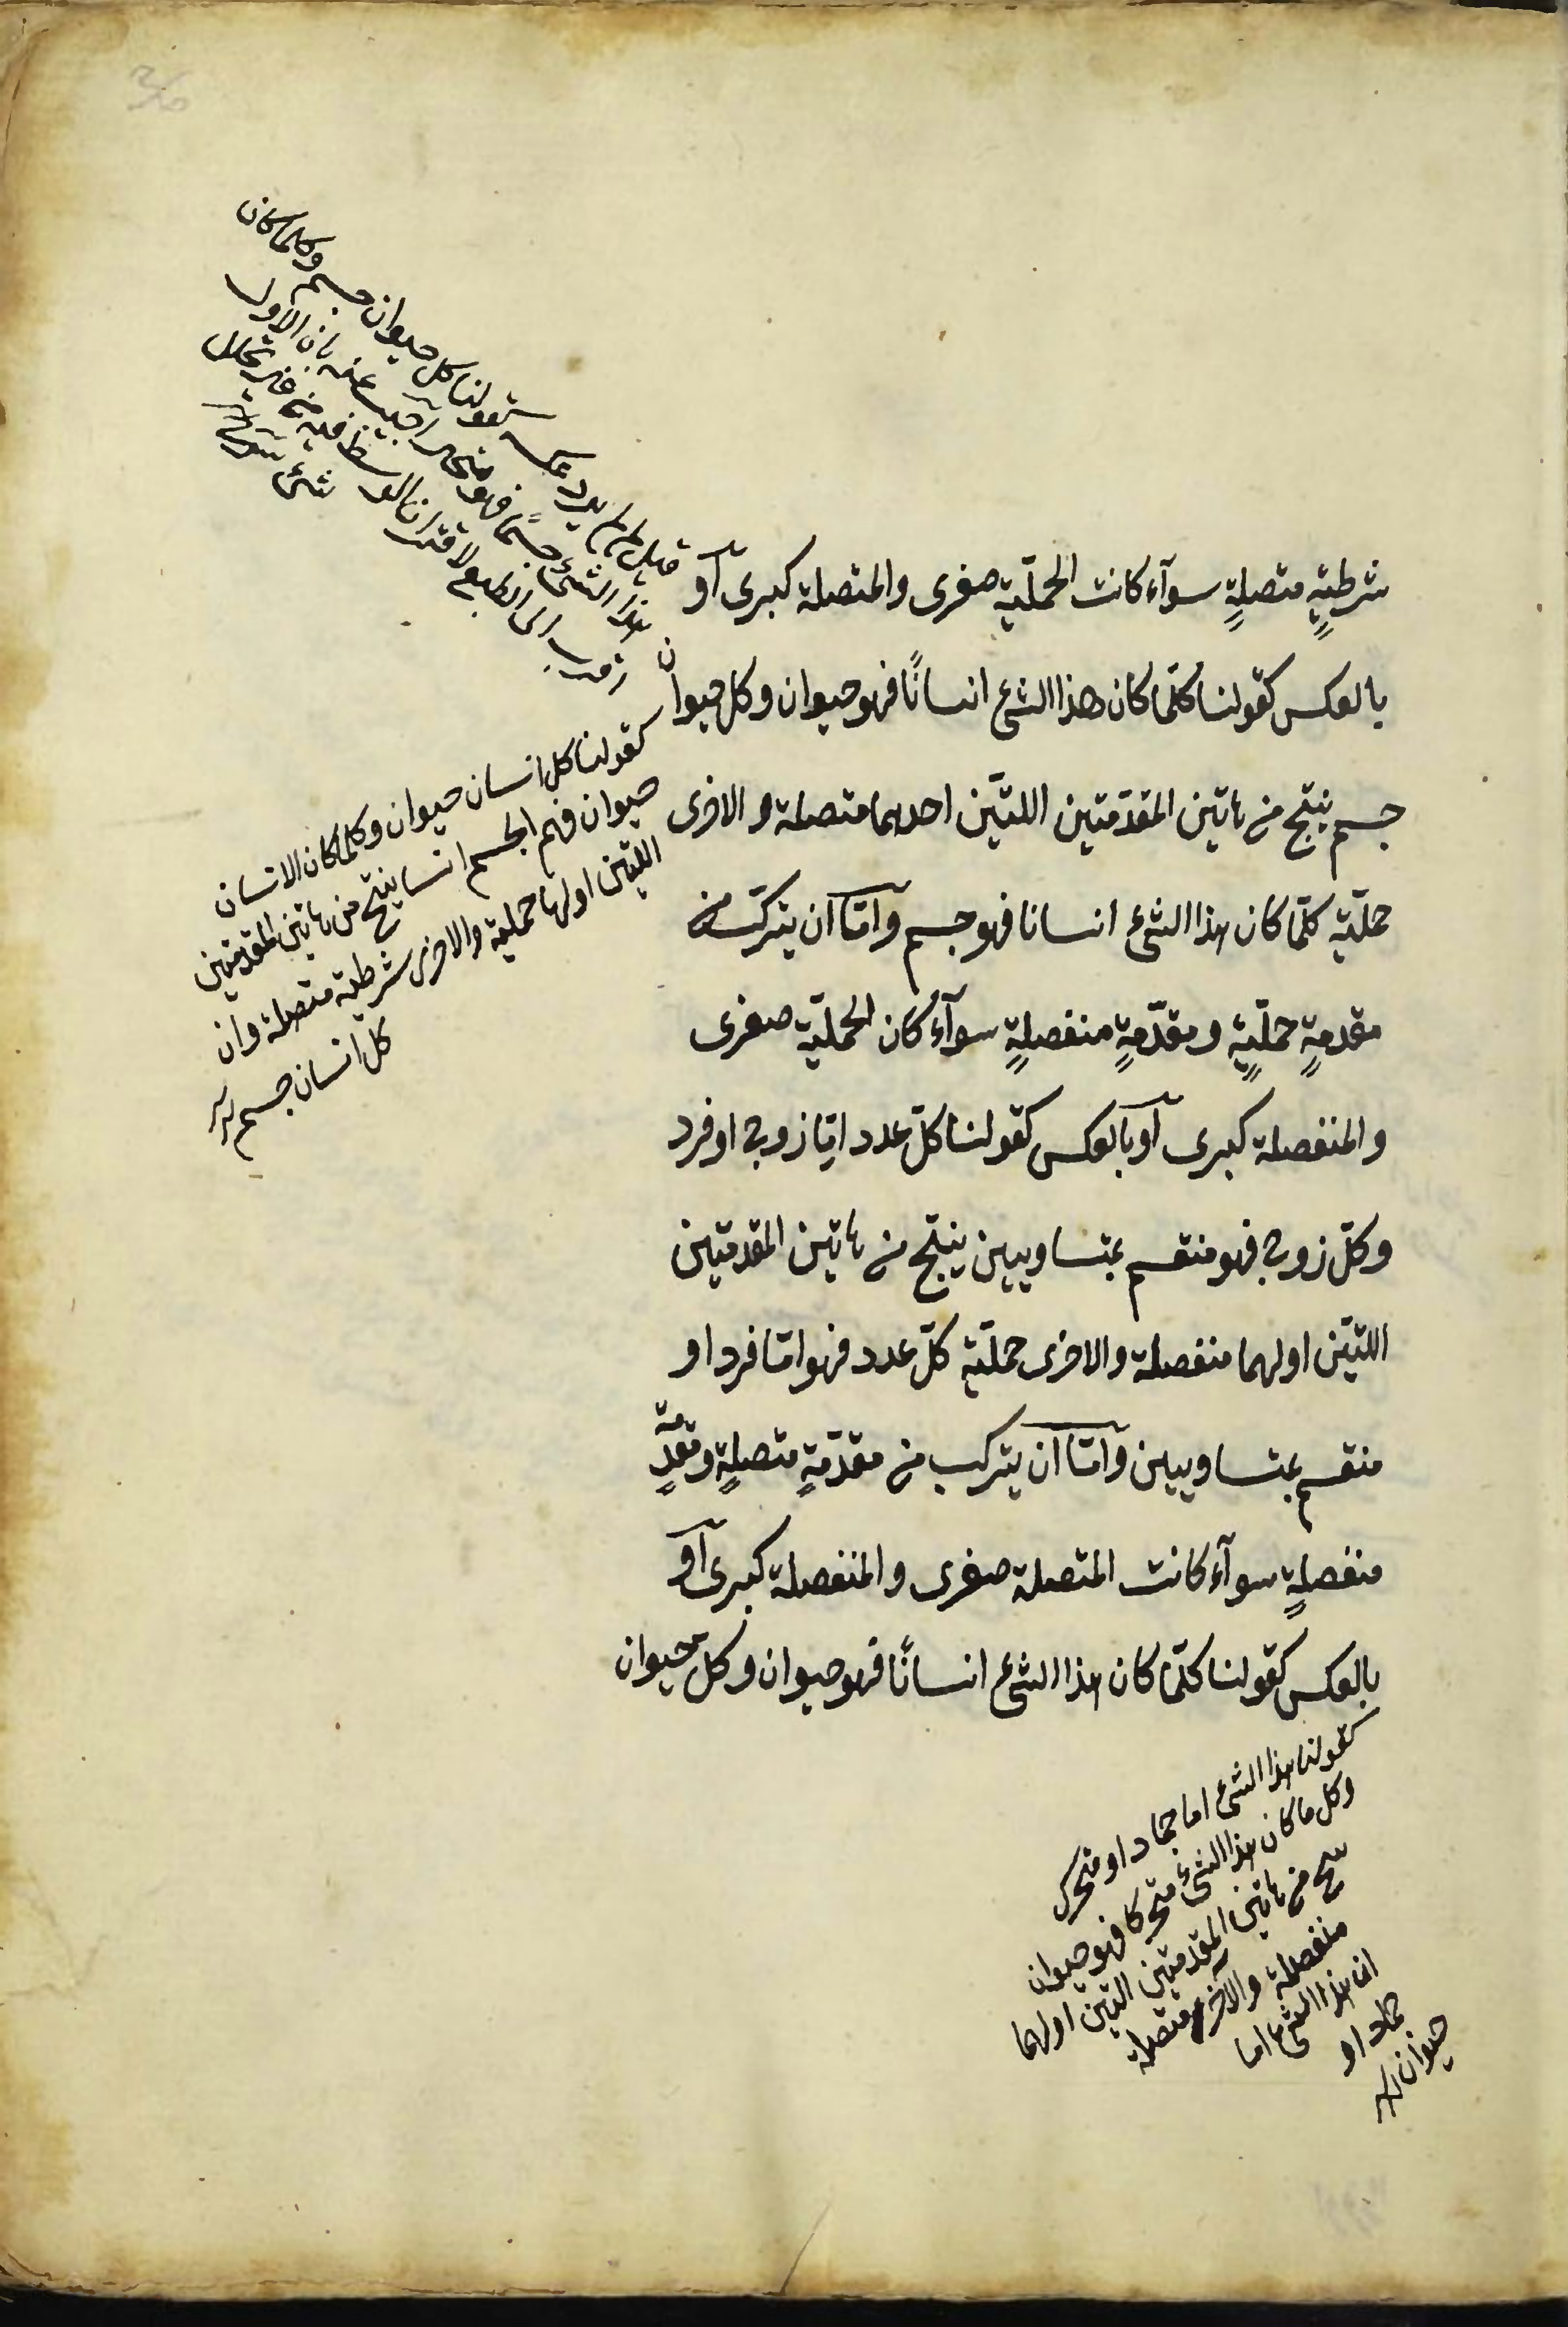 شرطيةٍ متصلةٍ سوآء كانت الحمليّة صغرى والمتصلة كبرى آو
بالعكس كقولنا كلّما كان هذا الشئ انسانًا فهو حيوان وكل حيوان
جسم ينتج من هاتين المقدّمتين اللتيّن احديهما متصلة والاخرى
حمليّة كلّما كان هذا الشئ انسانا فهو جسم وآمّا آن يتركّب من
مقدمةٍ حمليّةٍ ومقدّمةٍ منفصلةٍ سوآء كان الحمليّة صغرى
والمنفصلة كبرى آو بآلعكس كقولنا كلّ عدد امّا زوج او فرد
وكلّ زوج فهو منقسم بمتساويين ينتج من هاتين المقدمتين
اللتيّن اوليهما منفصلة والاخرى حمليّة كلّ عدد فهو امّا فرد او
منقسم بمتساويين وآمّا آن يتركب من مقدّمةٍ متصلةٍ ومقدّمةٍ
منفصلةٍ سوآء كانت المتصلة صغرى والمنفصلة كبرى آو
بالعكس كقولنا كلّما كان هذا الشئ انسانًا فهو حيوان وكل حيوان
قيل لم لم يورد عكسه كقولنا كل حيوان جسم وكلما كان
هذا الشئ جسمًا فهو متحيز اجيب عنه بان الاول
اقرب الى الطبع لاقتران الوسط فيه من غير تخلل
شئ
كقولنا كل انسان حيوان وكلما كان الانسان
حيوان فهم الجسم انسا ينتج من هاتين المقدمتين
اللتين اولها حملية والاخرى شرطية متصلة وان
كل انسان جسم
كقولنا هذا الشئ اما جماد او متحرك
وكل ما كان هذا الشئ متحركا فهو حيوان
ينتج من هاتين المقدمتين التين اولهما
منفصلة والآخرى متصلة
ان هذا الشئ اما
جماد او
حيوان